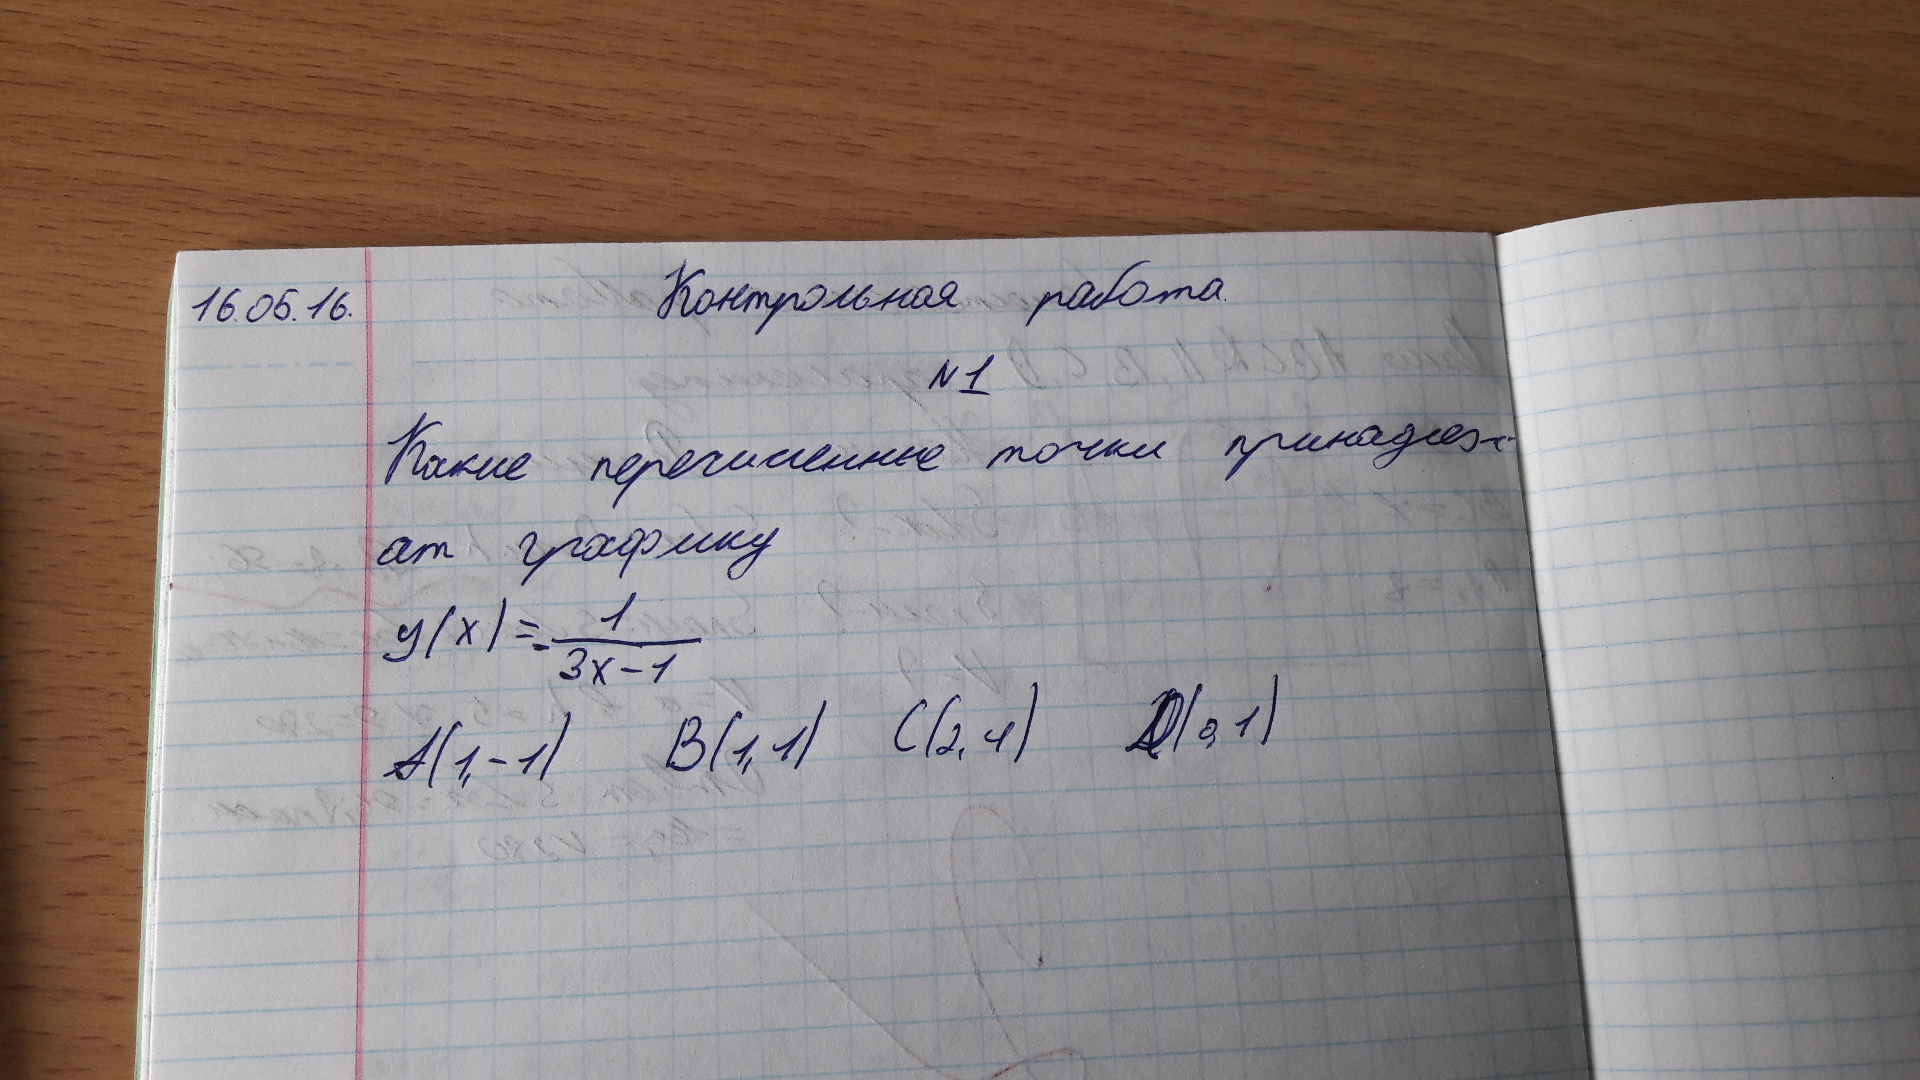 16.05.16.
Контрольная работа.
№1
Какие перечисленные точки принадлеж-
ат графику
y(x)=-\frac{1}{3x-1}
A(1,-1) B(1,1) C(2,4) D(0,1)